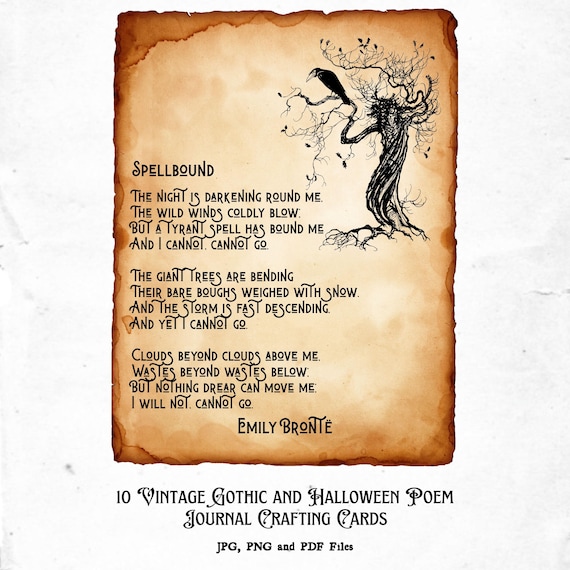 Spellbound
The night is darkening round me.
The wild winds coldly blow.
But a tyrant spell has bound me
And I cannot. cannot go.
The giant trees are bending
Their bare boughs weighed with snow.
And the storm is fast descending.
And yet I cannot go.
Clouds beyond clouds above me.
Wastes beyond wastes below.
But nothing drear can move me:
I will not. cannot go.
Emily Brontë
10 Vintage Gothic and Halloween Poem
Journal Crafting Cards
JPG, PNG and PDF Files